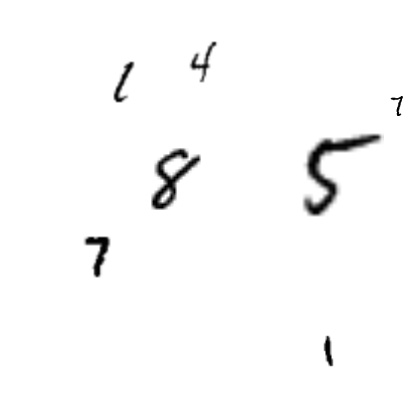 1 4
7
8 5
7
1